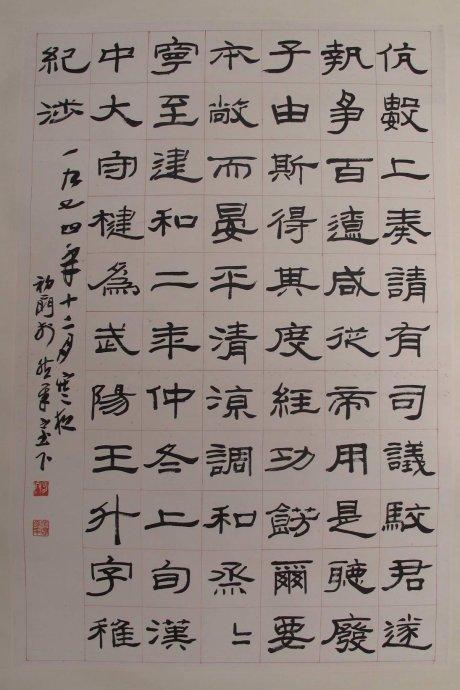 伉數上奏請有司議駮君遂
執爭百遼咸從帝用是聽廢
子由斯得其度經功飭爾要
本敞而晏平清涼調和烝〻
寧至建和二年仲冬上旬漢
中大守楗為武陽王升字稚
紀涉
一九九四年十二月寒松